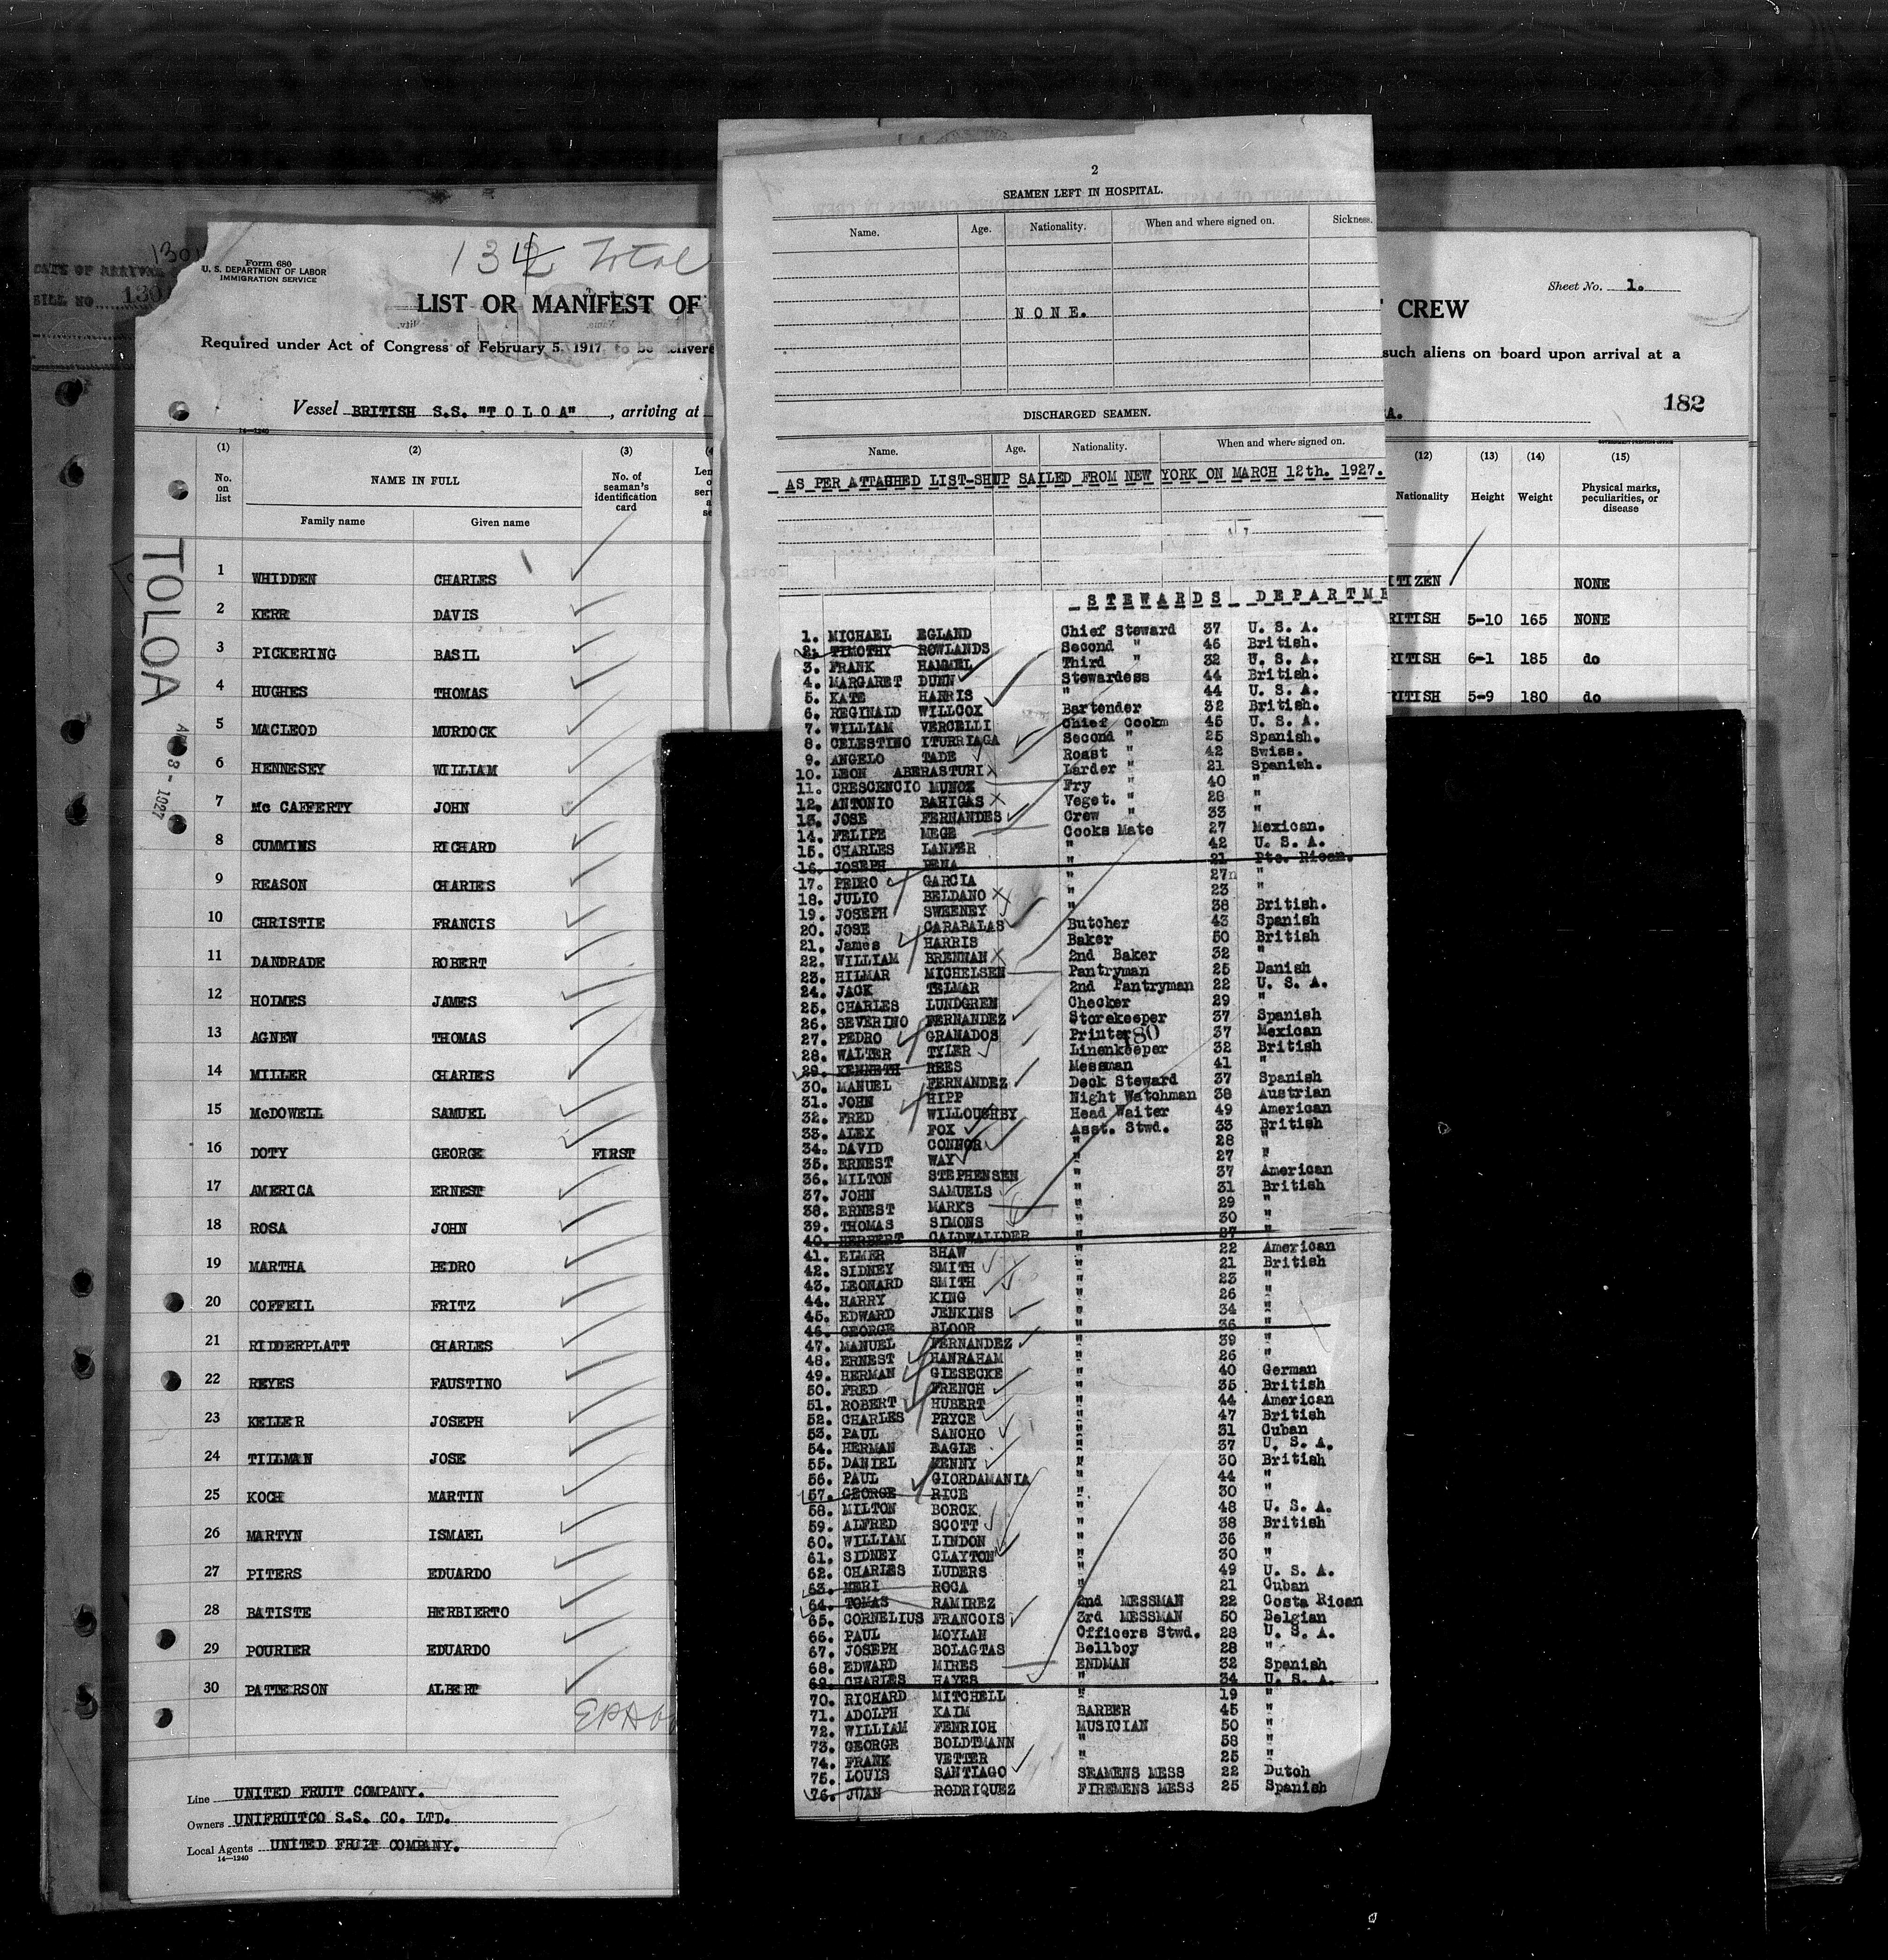 DATE OF ARRIVAL
BILL NO. 130
Form 680
U. S. DEPARTMENT OF LABOR
IMMIGRATION SERVICE
Total
LIST OR MANIFEST OF
Required under Act of Congress of February 5, 1917, to be delivere
Vessel BRITISH S.S. "T O L O A", arriving at
14—1240
(1) (2) (3)
No. on list NAME IN FULL No. of seaman's identification card
Family name Given name
TOLOA
1 WHIDDEN CHARLES
2 KERR DAVIS
3 PICKERING BASIL
4 HUGHES THOMAS
5 MACLEOD MURDOCK
6 HENNESEY WILLIAM
7 Mc CAFFERTY JOHN
8 CUMMINS RICHARD
9 REASON CHARLES
10 CHRISTIE FRANCIS
11 DANDRADE ROBERT
12 HOLMES JAMES
13 AGNEW THOMAS
14 MILLER CHARLES
15 McDOWELL SAMUEL
16 DOTY GEORGE FIRST
17 AMERICA ERNEST
18 ROSA JOHN
19 MARTHA PEDRO
20 COFFEIL FRITZ
21 RIDDERPLATT CHARLES
22 REYES FAUSTINO
23 KELLER JOSEPH
24 TILLMAN JOSE
25 KOCH MARTIN
26 MARTYN ISMAEL
27 PITERS EDUARDO
28 BATISTE HERBIERTO
29 POURIER EDUARDO
30 PATTERSON ALBERT
Line UNITED FRUIT COMPANY.
Owners UNIFRUITCO S.S. CO. LTD.
Local Agents UNITED FRUIT COMPANY.
14—1240
2
SEAMEN LEFT IN HOSPITAL.
Name. Age. Nationality. When and where signed on. Sickness.
N O N E.
DISCHARGED SEAMEN.
Name. Age. Nationality. When and where signed on.
AS PER ATTACHED LIST-SHIP SAILED FROM NEW YORK ON MARCH 12th. 1927.
S T E W A R D S D E P A R T M E
1. MICHAEL EGLAND Chief Steward 37 U. S. A.
2. TIMOTHY ROWLANDS Second " 46 British.
3. FRANK HAMMEL Third " 32 U. S. A.
4. MARGARET DUNN Stewardess 44 British.
5. KATE HARRIS " 44 U. S. A.
6. REGINALD WILLCOX Bartender 32 British.
7. WILLIAM VERCELLI Chief Cookm 45 U. S. A.
8. CELESTINO ITURRIAGA Second " 25 Spanish.
9. ANGELO TADE Roast " 42 Swiss.
10. LEON ABERASTURI Larder " 21 Spanish.
11. CRESCENCIO MUNOZ Fry " 40 "
12. ANTONIO BAHIGAS Veget. " 28 "
13. JOSE FERNANDES Crew " 33 "
14. FELIPE MEGE Cooks Mate 27 Mexican.
15. CHARLES LANFER " 42 U. S. A.
16. JOSEPH PENA " 21 Pto. Rican.
17. PEDRO GARCIA " 27n "
18. JULIO BELDANO " 23 "
19. JOSEPH SWEENEY " 38 British.
20. JOSE CARABALAS Butcher 43 Spanish
21. James HARRIS Baker 50 British
22. WILLIAM BRENNAN 2nd Baker 32 "
23. HILMAR MICHELSEN Pantryman 25 Danish
24. JACK TELMAR 2nd Pantryman 22 U. S. A.
25. CHARLES LUNDGREN Checker 29 "
26. SEVERINO FERNANDEZ Storekeeper 37 Spanish
27. PEDRO GRANADOS Printer 37 Mexican
28. WALTER TYLER Linenkeeper 32 British
29. KENNETH REES Messman 41 "
30. MANUEL FERNANDEZ Deck Steward 37 Spanish
31. JOHN HIPP Night Watchman 38 Austrian
32. FRED WILLOUGHBY Head Waiter 49 American
33. ALEX FOX Asst. Stwd. 33 British
34. DAVID CONNOR " 28 "
35. ERNEST WAY " 27 "
36. MILTON STEPHENSEN " 37 American
37. JOHN SAMUELS " 31 British
38. ERNEST MARKS " 29 "
39. THOMAS SIMONS " 30 "
40. HERBERT CALDWALLDER " 37 "
41. ELMER SHAW " 22 American
42. SIDNEY SMITH " 21 British
43. LEONARD SMITH " 23 "
44. HARRY KING " 26 "
45. EDWARD JENKINS " 34 "
46. GEORGE BLOOR " 36 "
47. MANUEL FERNANDEZ " 39 "
48. ERNEST HANRAHAM " 26 "
49. HERMAN GIESECKE " 40 German
50. FRED FRENCH " 35 British
51. ROBERT HUBERT " 44 American
52. CHARLES PRYCE " 47 British
53. PAUL SANCHO " 31 Cuban
54. HERMAN EAGLE " 37 U. S. A.
55. DANIEL KENNY " 30 British
56. PAUL GIORDAMANIA " 44 "
57. GEORGE RICE " 30 "
58. MILTON BORCK " 48 U. S. A.
59. ALFRED SCOTT " 38 British
60. WILLIAM LINDON " 36 "
61. SIDNEY CLAYTON " 30 "
62. CHARLES LUDERS " 49 U. S. A.
63. MERI ROCA " 21 Cuban
64. TOMAS RAMIREZ 2nd MESSMAN 22 Costa Rican
65. CORNELIUS FRANCOIS 3rd MESSMAN 50 Belgian
66. PAUL MOYLAN Officers Stwd. 28 U. S. A.
67. JOSEPH BOLAGTAS Bellboy 28 "
68. EDWARD MIRES ENDMAN 32 Spanish
69. CHARLES HAYES " 34 U. S. A.
70. RICHARD MITCHELL " 19 "
71. ADOLPH KAIM BARBER 45 "
72. WILLIAM FENRICH MUSICIAN 50 "
73. GEORGE BOLDTMANN " 58 "
74. FRANK VETTER " 25 "
75. LOUIS SANTIAGO SEAMENS MESS 22 Dutch
76. JUAN RODRIQUEZ FIREMENS MESS 25 Spanish
Sheet No. 1.
CREW
such aliens on board upon arrival at a
182
(12) (13) (14) (15)
Nationality Height Weight Physical marks, peculiarities, or disease
ITIZEN NONE
RITISH 5-10 165 NONE
RITISH 6-1 185 do
RITISH 5-9 180 do